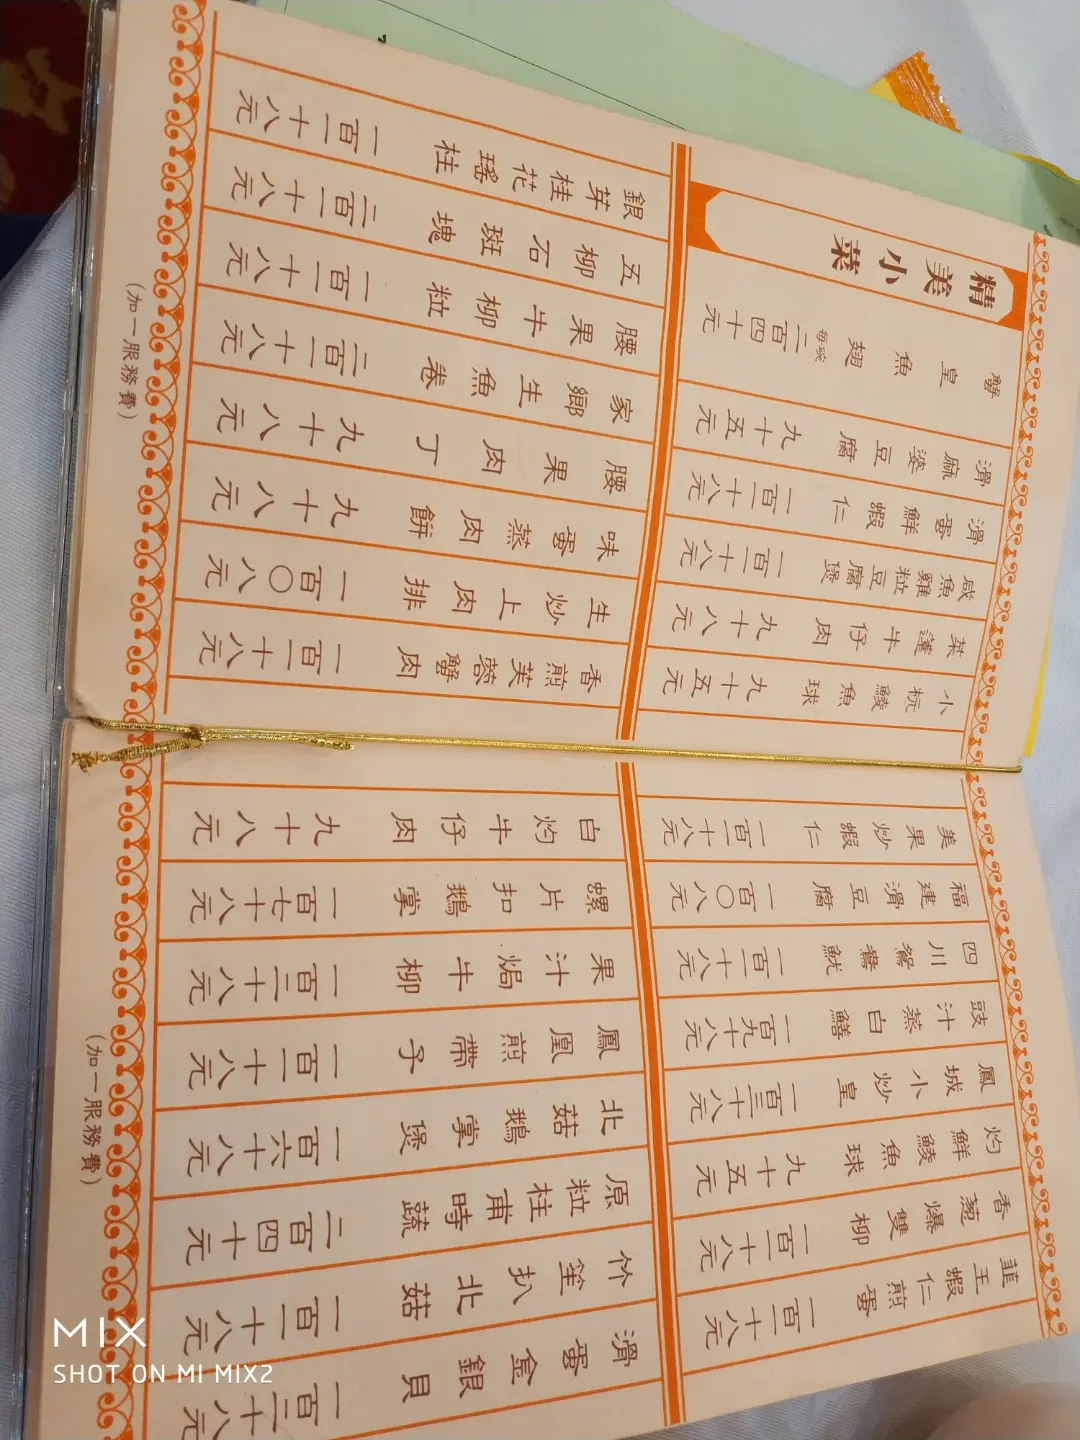 精美小菜
蟹皇魚翅 每碗 二百四十元
滑麻婆豆腐 九十五元
滑蛋鮮蝦仁 一百一十八元
咸魚雞粒豆腐煲 一百一十八元
菜薳牛仔肉 九十八元
小杬鯪魚球 九十五元
銀芽桂花瑤柱 一百一十八元
五柳石斑塊 二百一十八元
腰果牛柳粒 一百一十八元
家鄉生魚卷 二百一十八元
腰果肉丁 九十八元
味蛋蒸肉餅 九十八元
生炒上肉排 一百〇八元
香煎芙蓉蟹肉 一百一十八元
(加一服務費)
美果炒蝦仁 一百一十八元
福建滑豆腐 一百〇八元
四川鴛鴦魷 一百一十八元
豉汁蒸白鱔 一百九十八元
鳳城小炒皇 一百三十八元
灼鮮鯪魚球 九十五元
香葱爆雙柳 一百一十八元
韮王蝦仁煎蛋 一百一十八元
白灼牛仔肉 九十八元
螺片扣鵝掌 一百七十八元
果汁焗牛柳 一百三十八元
鳳凰煎帶子 一百一十八元
北菇鵝掌煲 一百六十八元
原粒柱甫時蔬 二百四十元
竹笙扒北菇 一百一十八元
滑蛋金銀貝 一百三十八元
(加一服務費)
MIX
SHOT ON MI MIX2